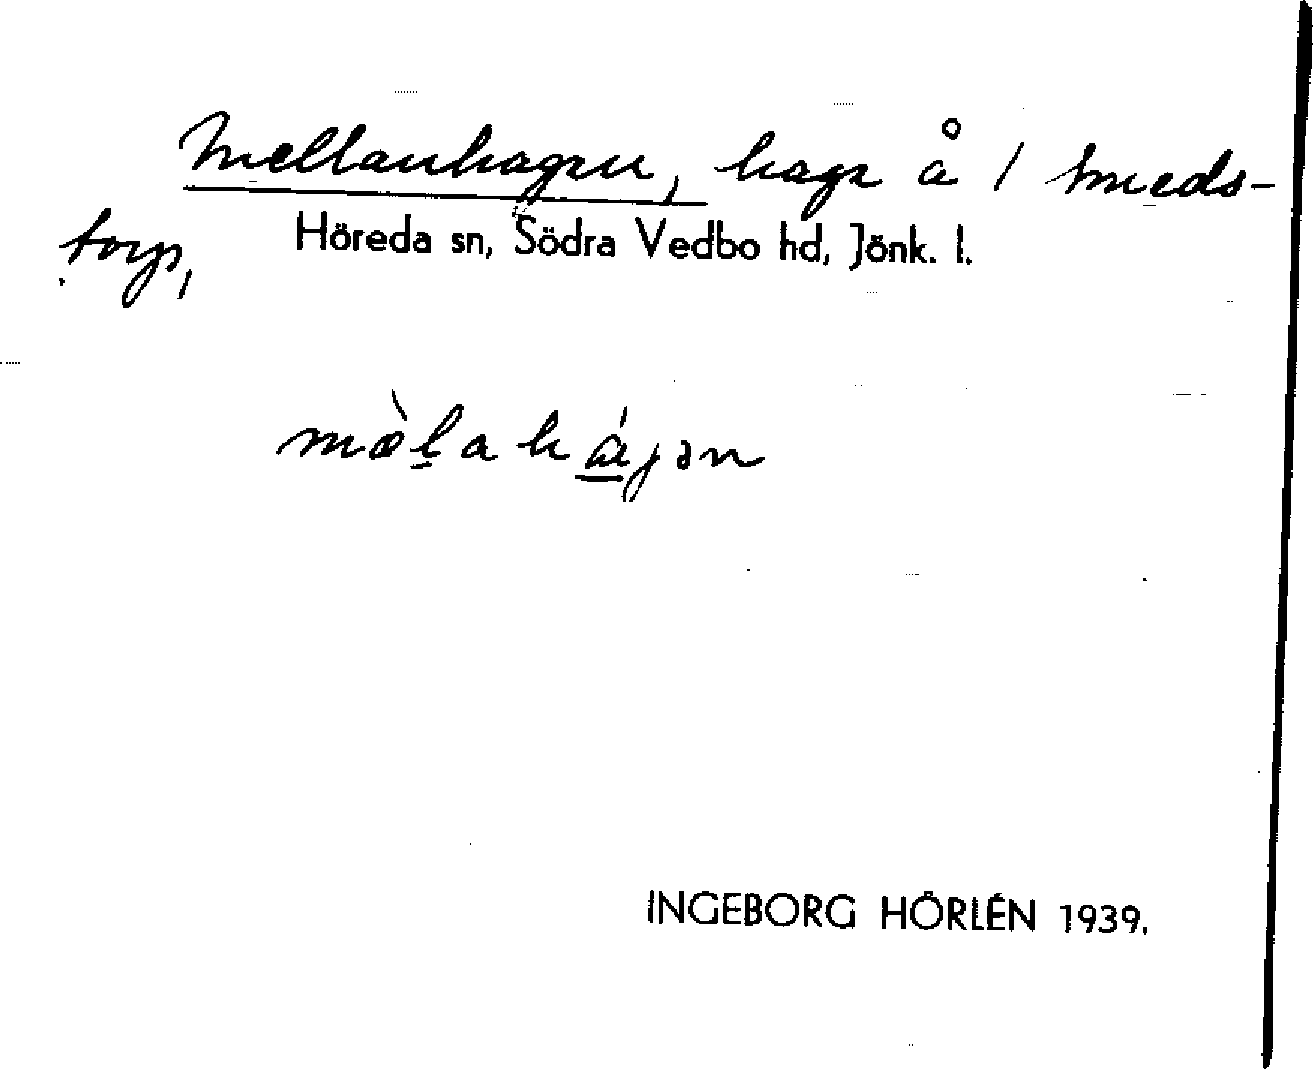 Mellanhagen, hage å 1 Smeds-
torp, Höreda sn, Södra Vedbo hd, Jönk. l.
mæ̀l̠ahá̠jən
INGEBORG HÖRLÉN 1939.